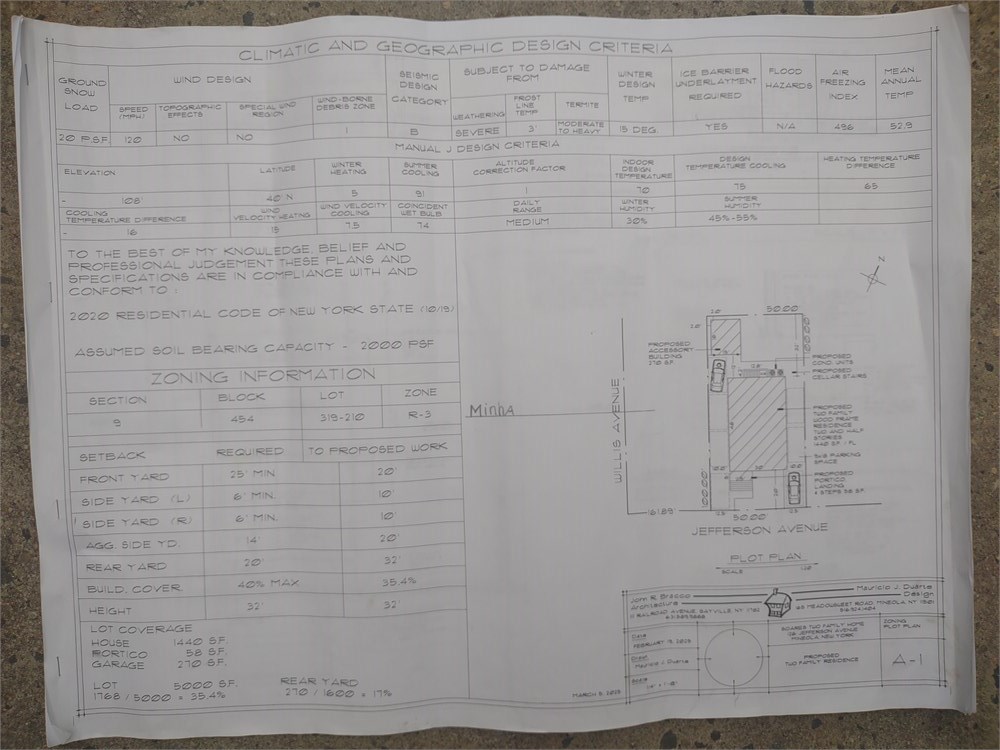 CLIMATIC AND GEOGRAPHIC DESIGN CRITERIA
GROUND SNOW LOAD
WIND DESIGN
SPEED (MPH)
TOPOGRAPHIC EFFECTS
SPECIAL WIND REGION
WIND-BORNE DEBRIS ZONE
SEISMIC DESIGN CATEGORY
SUBJECT TO DAMAGE FROM
WEATHERING
FROST LINE TEMP
TERMITE
WINTER DESIGN TEMP
ICE BARRIER UNDERLAYMENT REQUIRED
FLOOD HAZARDS
AIR FREEZING INDEX
MEAN ANNUAL TEMP
20 P.S.F. 120 NO NO 1 B SEVERE 3' MODERATE TO HEAVY 15 DEG. YES N/A 496 52.9
MANUAL J DESIGN CRITERIA
ELEVATION
LATITUDE
WINTER HEATING
SUMMER COOLING
ALTITUDE CORRECTION FACTOR
INDOOR DESIGN TEMPERATURE
DESIGN TEMPERATURE COOLING
HEATING TEMPERATURE DIFFERENCE
- 108' 40 N 5 91 1 70 75 65
COOLING TEMPERATURE DIFFERENCE
WIND VELOCITY HEATING
WIND VELOCITY COOLING
COINCIDENT WET BULB
DAILY RANGE
WINTER HUMIDITY
SUMMER HUMIDITY
- 16 15 7.5 74 MEDIUM 30% 45%-55%
TO THE BEST OF MY KNOWLEDGE, BELIEF AND
PROFESSIONAL JUDGEMENT THESE PLANS AND
SPECIFICATIONS ARE IN COMPLIANCE WITH AND
CONFORM TO :
2020 RESIDENTIAL CODE OF NEW YORK STATE (10/19)
ASSUMED SOIL BEARING CAPACITY - 2000 PSF
ZONING INFORMATION
SECTION BLOCK LOT ZONE
9 454 319-210 R-3
SETBACK REQUIRED TO PROPOSED WORK
FRONT YARD 25' MIN. 20'
SIDE YARD (L) 6' MIN. 10'
SIDE YARD (R) 6' MIN. 10'
AGG. SIDE YD. 14' 20'
REAR YARD 20' 32'
BUILD. COVER. 40% MAX 35.4%
HEIGHT 32' 32'
LOT COVERAGE
HOUSE 1440 S.F.
PORTICO 58 S.F.
GARAGE 270 S.F.
LOT 5000 S.F.
1768 / 5000 = 35.4%
REAR YARD
270 / 1600 = 17%
MinhA
N
50.00
PROPOSED
ACCESSORY
BUILDING
270 SF.
PROPOSED
COND. UNITS
PROPOSED
CELLAR STAIRS
PROPOSED
TWO FAMILY
WOOD FRAME
RESIDENCE
TWO AND HALF
STORIES
1440 S.F. / FL
PARKING
SPACE
PROPOSED
PORTICO
LANDING
4 STEPS 58 SF.
WILLIS AVENUE
161.89
50.00
JEFFERSON AVENUE
PLOT PLAN
SCALE
John R. Bracco
Architecture
11 RAILROAD AVENUE, SAYVILLE, NY
Mauricio J. Duarte
Design
MEADOW ROAD, MINEOLA, NY 11501
Date
FEBRUARY 19, 2025
Drawn
Mauricio J. Duarte
Scale
1/4" = 1'-0"
SOARES TWO FAMILY HOME
JEFFERSON AVENUE
MINEOLA, NEW YORK
ZONING
PLOT PLAN
PROPOSED
TWO FAMILY RESIDENCE
A-1
MARCH 5, 2025